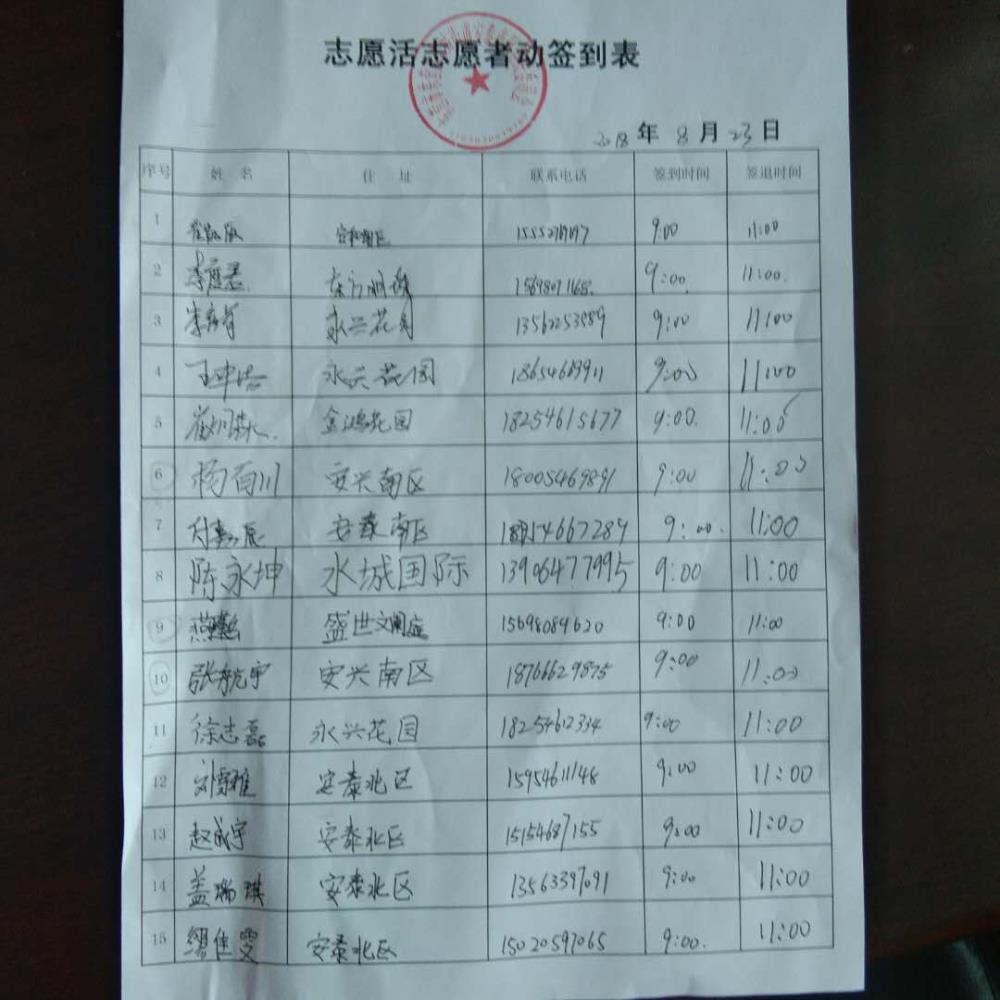 志愿活志愿者动签到表
2018 年 8 月 23 日
序号 姓 名 住 址 联系电话 签到时间 签退时间
1 9:00 11:00
2 9:00 11:00
3 永兴花园 13562253989 9:00 11:00
4 永兴花园 9:00 11:00
5 金鸿花园 18254615677 9:00 11:00
6 杨百川 安兴南区 18005469891 9:00 11:00
7 安泰南区 9:00 11:00
8 陈永坤 水城国际 13906477995 9:00 11:00
9 盛世 15698089620 9:00 11:00
10 张航宇 安兴南区 18766629875 9:00 11:00
11 徐志磊 永兴花园 9:00 11:00
12 安泰北区 15954611148 9:00 11:00
13 赵成宇 安泰北区 15154687155 9:00 11:00
14 盖瑞琪 安泰北区 13563397091 9:00 11:00
15 缪佳雯 安泰北区 15020597065 9:00 11:00